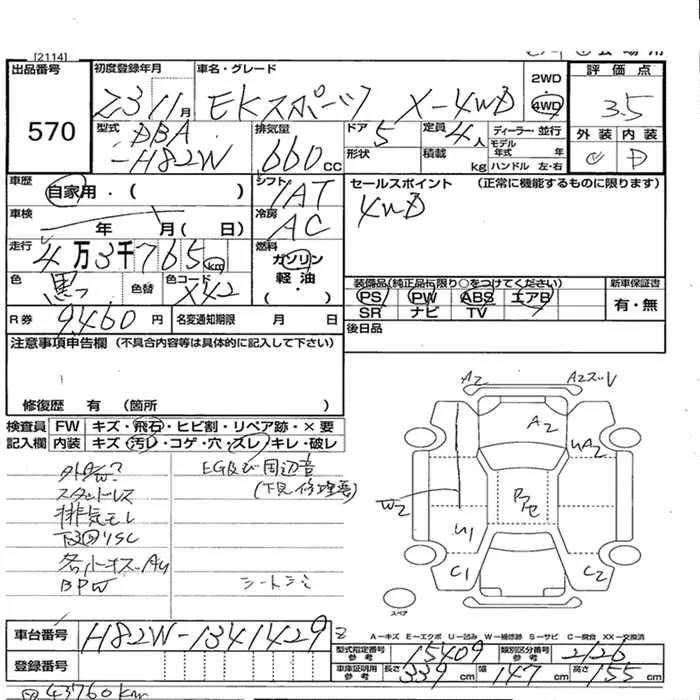 [2114]
出品番号 初度登録年月 車名・グレード 2WD 評価点
570
23 11月 EKスポーツ X-4WD 4WD 3.5
型式 DBA 排気量 ドア 定員 ディーラー・並行 外装 内装
-H82W 660cc 5 4人 モデル年式 年
形状 積載 kg ハンドル 左・右 C D
車歴 自家用・( ) シフト IAT セールスポイント (正常に機能するものに限ります)
車検 年 月( 日) 冷房 AC 4WD
走行 4万3千765km 燃料 ガソリン
軽油
色 黒 色替 色コード X42 装備品(純正品に限り○をつけてください) 新車保証書
PS PW ABS エアB 有・無
SR ナビ TV
R券 9460円 名変通知期限 月 日 後日品
注意事項申告欄 (不具合内容等は具体的に記入して下さい)
修復歴 有 (箇所 )
検査員 FW キズ・飛石・ヒビ割・リペア跡・×要
記入欄 内装 キズ・汚レ・コゲ・穴・スレ・キレ・破レ
EG及び周辺音
スタッドレス
排気モレ
下回りSC
BPW
A2 A2ズV
A2 UA2
W2 U1
C1 C2
スペア
A-キズ E-エクボ U-凹み W-補修跡 S-サビ C-腐食 XX-交換済
車台番号 H82W-1341429
型式指定番号 参考 15409 類別区分番号 参考 2126
登録番号 車庫証明用 参考 長さ 339cm 幅 147cm 高さ 155cm
43760km